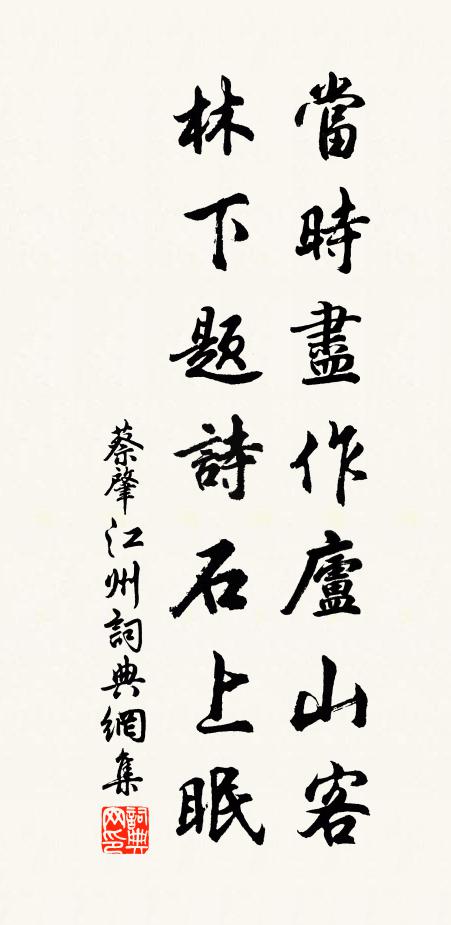 當時盡作廬山客
林下題詩石上眠
蔡肇江州詞典網集
詞典網印